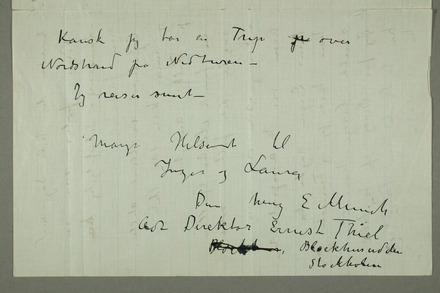 Kansk jeg tar en Trip over
Nordstrand fra Nedturen –
Jeg reiser snart –
Mange Hilsener til
Inger og Laura
Din heng E Munch
Adr Direktør Ernest Thiel
Blockhusudden
Stockholm